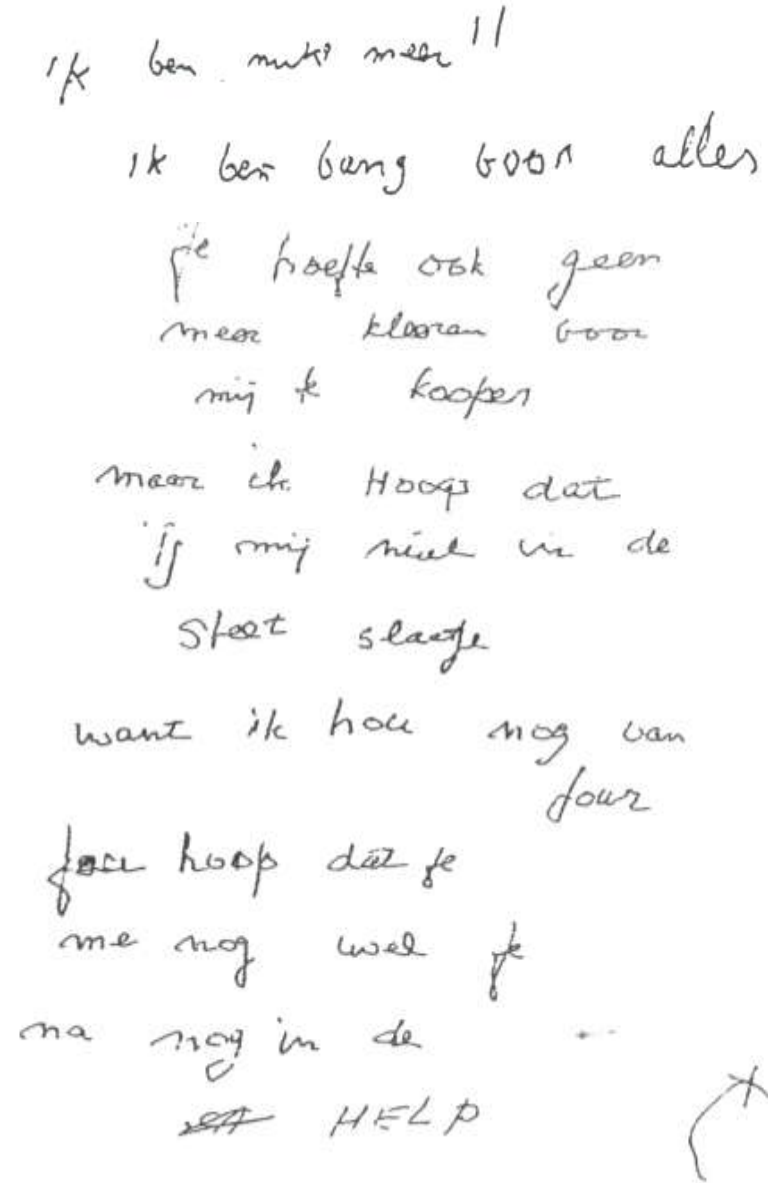 ik ben niks meer !!
ik ben bang voor alles
je hoefte ook geen
meer kleoran voor
mij te koopen
maar ik Hoop dat
ij mij niet in de
Steet slaatje
want ik hou nog van
jour
jou hoop dat je
me nog wel je
na nog in de
HELP